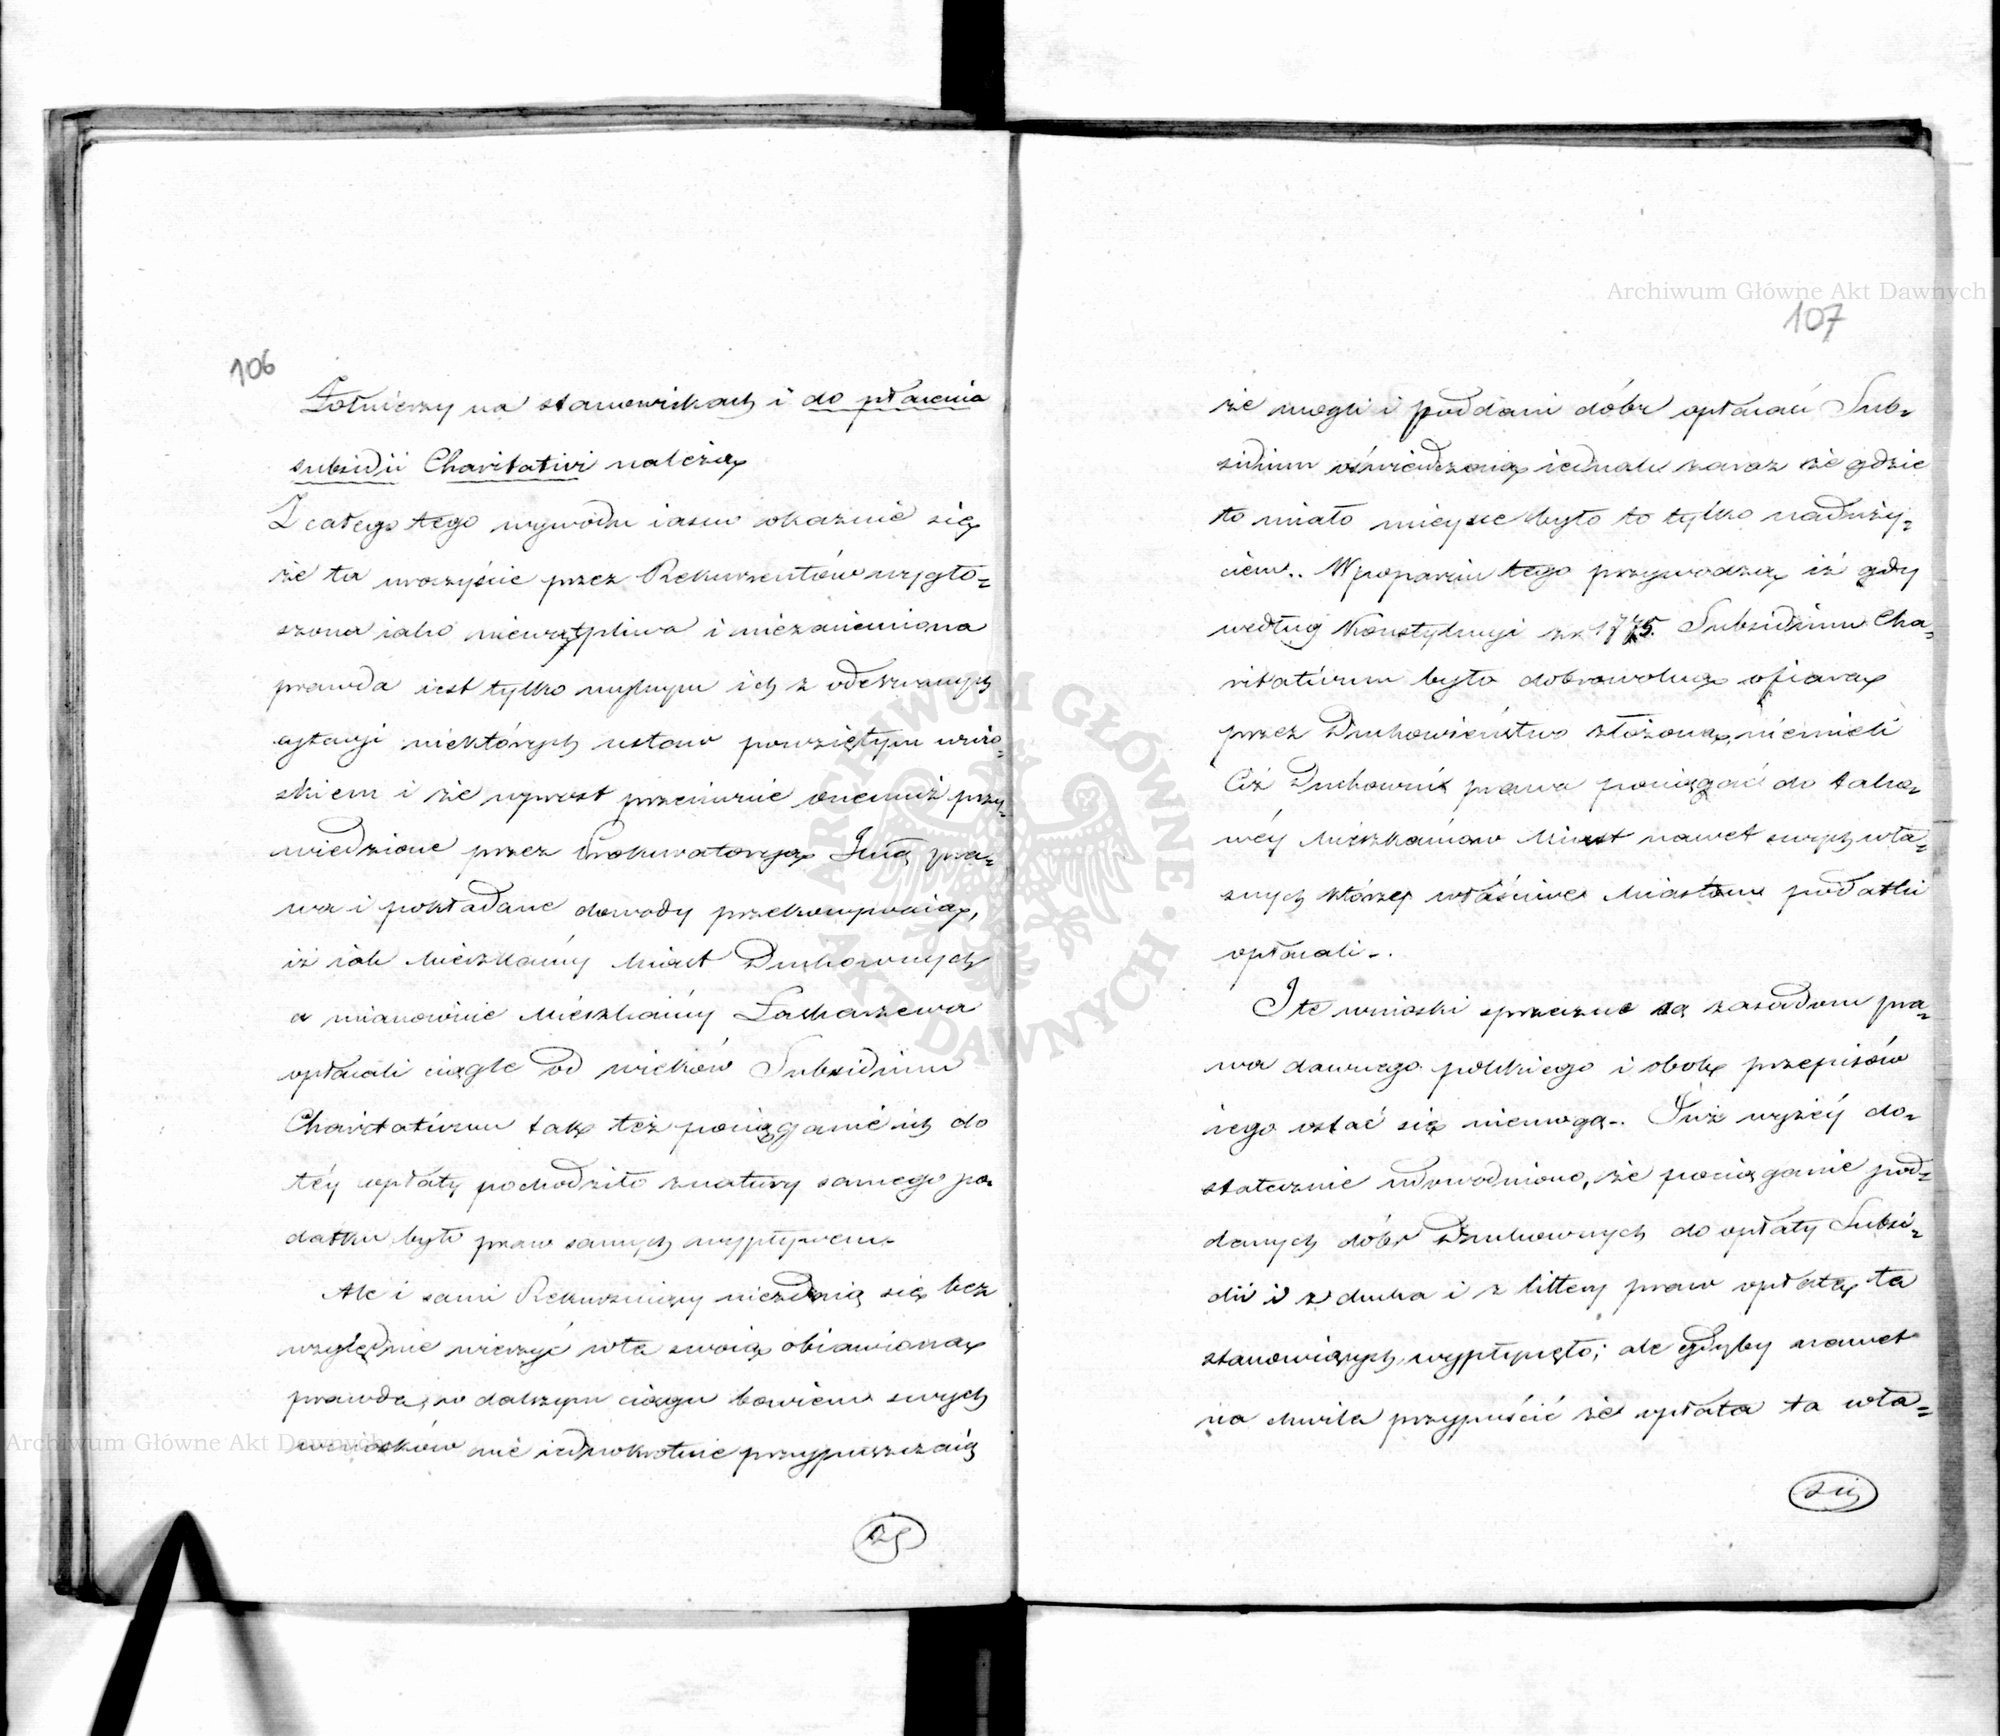 106
Żołnierzy na stanowiskach i do płacenia
subsidii Charitativi należą
Z całego tego wywodu iasno okazuie się
że ta uroczyście przez Rekurentów wygło-
szona iako niewątpliwa i niezmienniona
prawda iest tylko mylnym ich z oderwanych
cytacji niektórych ustaw powziętym wnio-
skiem i że wprost przeciwnie onemuż przy-
wiedzione przez Prokuratoryą Jlną pra-
wa i pokładane dowody przekonywaią,
iż iak Mieszkańcy Miast Duchownych
a mianowicie Mieszkańcy
opłacali ciągle od wieków Subsidium
Charitativum tak też pociąganie ich do
téy opłaty pochodziło z natury samego po-
datku było praw samych wypływem.
Ale i sami Rekurenci niezdaią się bez
względnie wierzyć w tę swoią obiawioną
prawdę, w dalszym ciągu bowiem swych
wniosków nie iednokrotnie przypuszczaią
że
107
że mogli i poddani dóbr opłacać Sub-
sidium oświadczaią iednak zaraz że gdzie
to miało mieysce było to tylko naduży-
ciem.. W poparciu tego przywodzą iż gdy
według Konstytucyi z r. 1775. Subsidium Cha-
ritativum było dobrowolną ofiarą
przez Duchowieństwo złożoną, niemieli
Ciż Duchowni prawa pociągać do tako-
wéy Mieszkańców Miast nawet swych wła-
snych którzy właściwe Miastom podatki
opłacali..
I te wnioski sprzeczne są zasadom pra-
wa dawnego polskiego i obok przepisów
iego ostać się niemogą.. Już wyżéy do-
statecznie udowodniono, że pociąganie pod-
danych dóbr Duchownych do opłaty Subsi-
dii i z ducha i z littery praw opłatę tę
stanowiących, wypłynęło; ale gdyby nawet
na chwilę przypuścić że opłata ta wła-